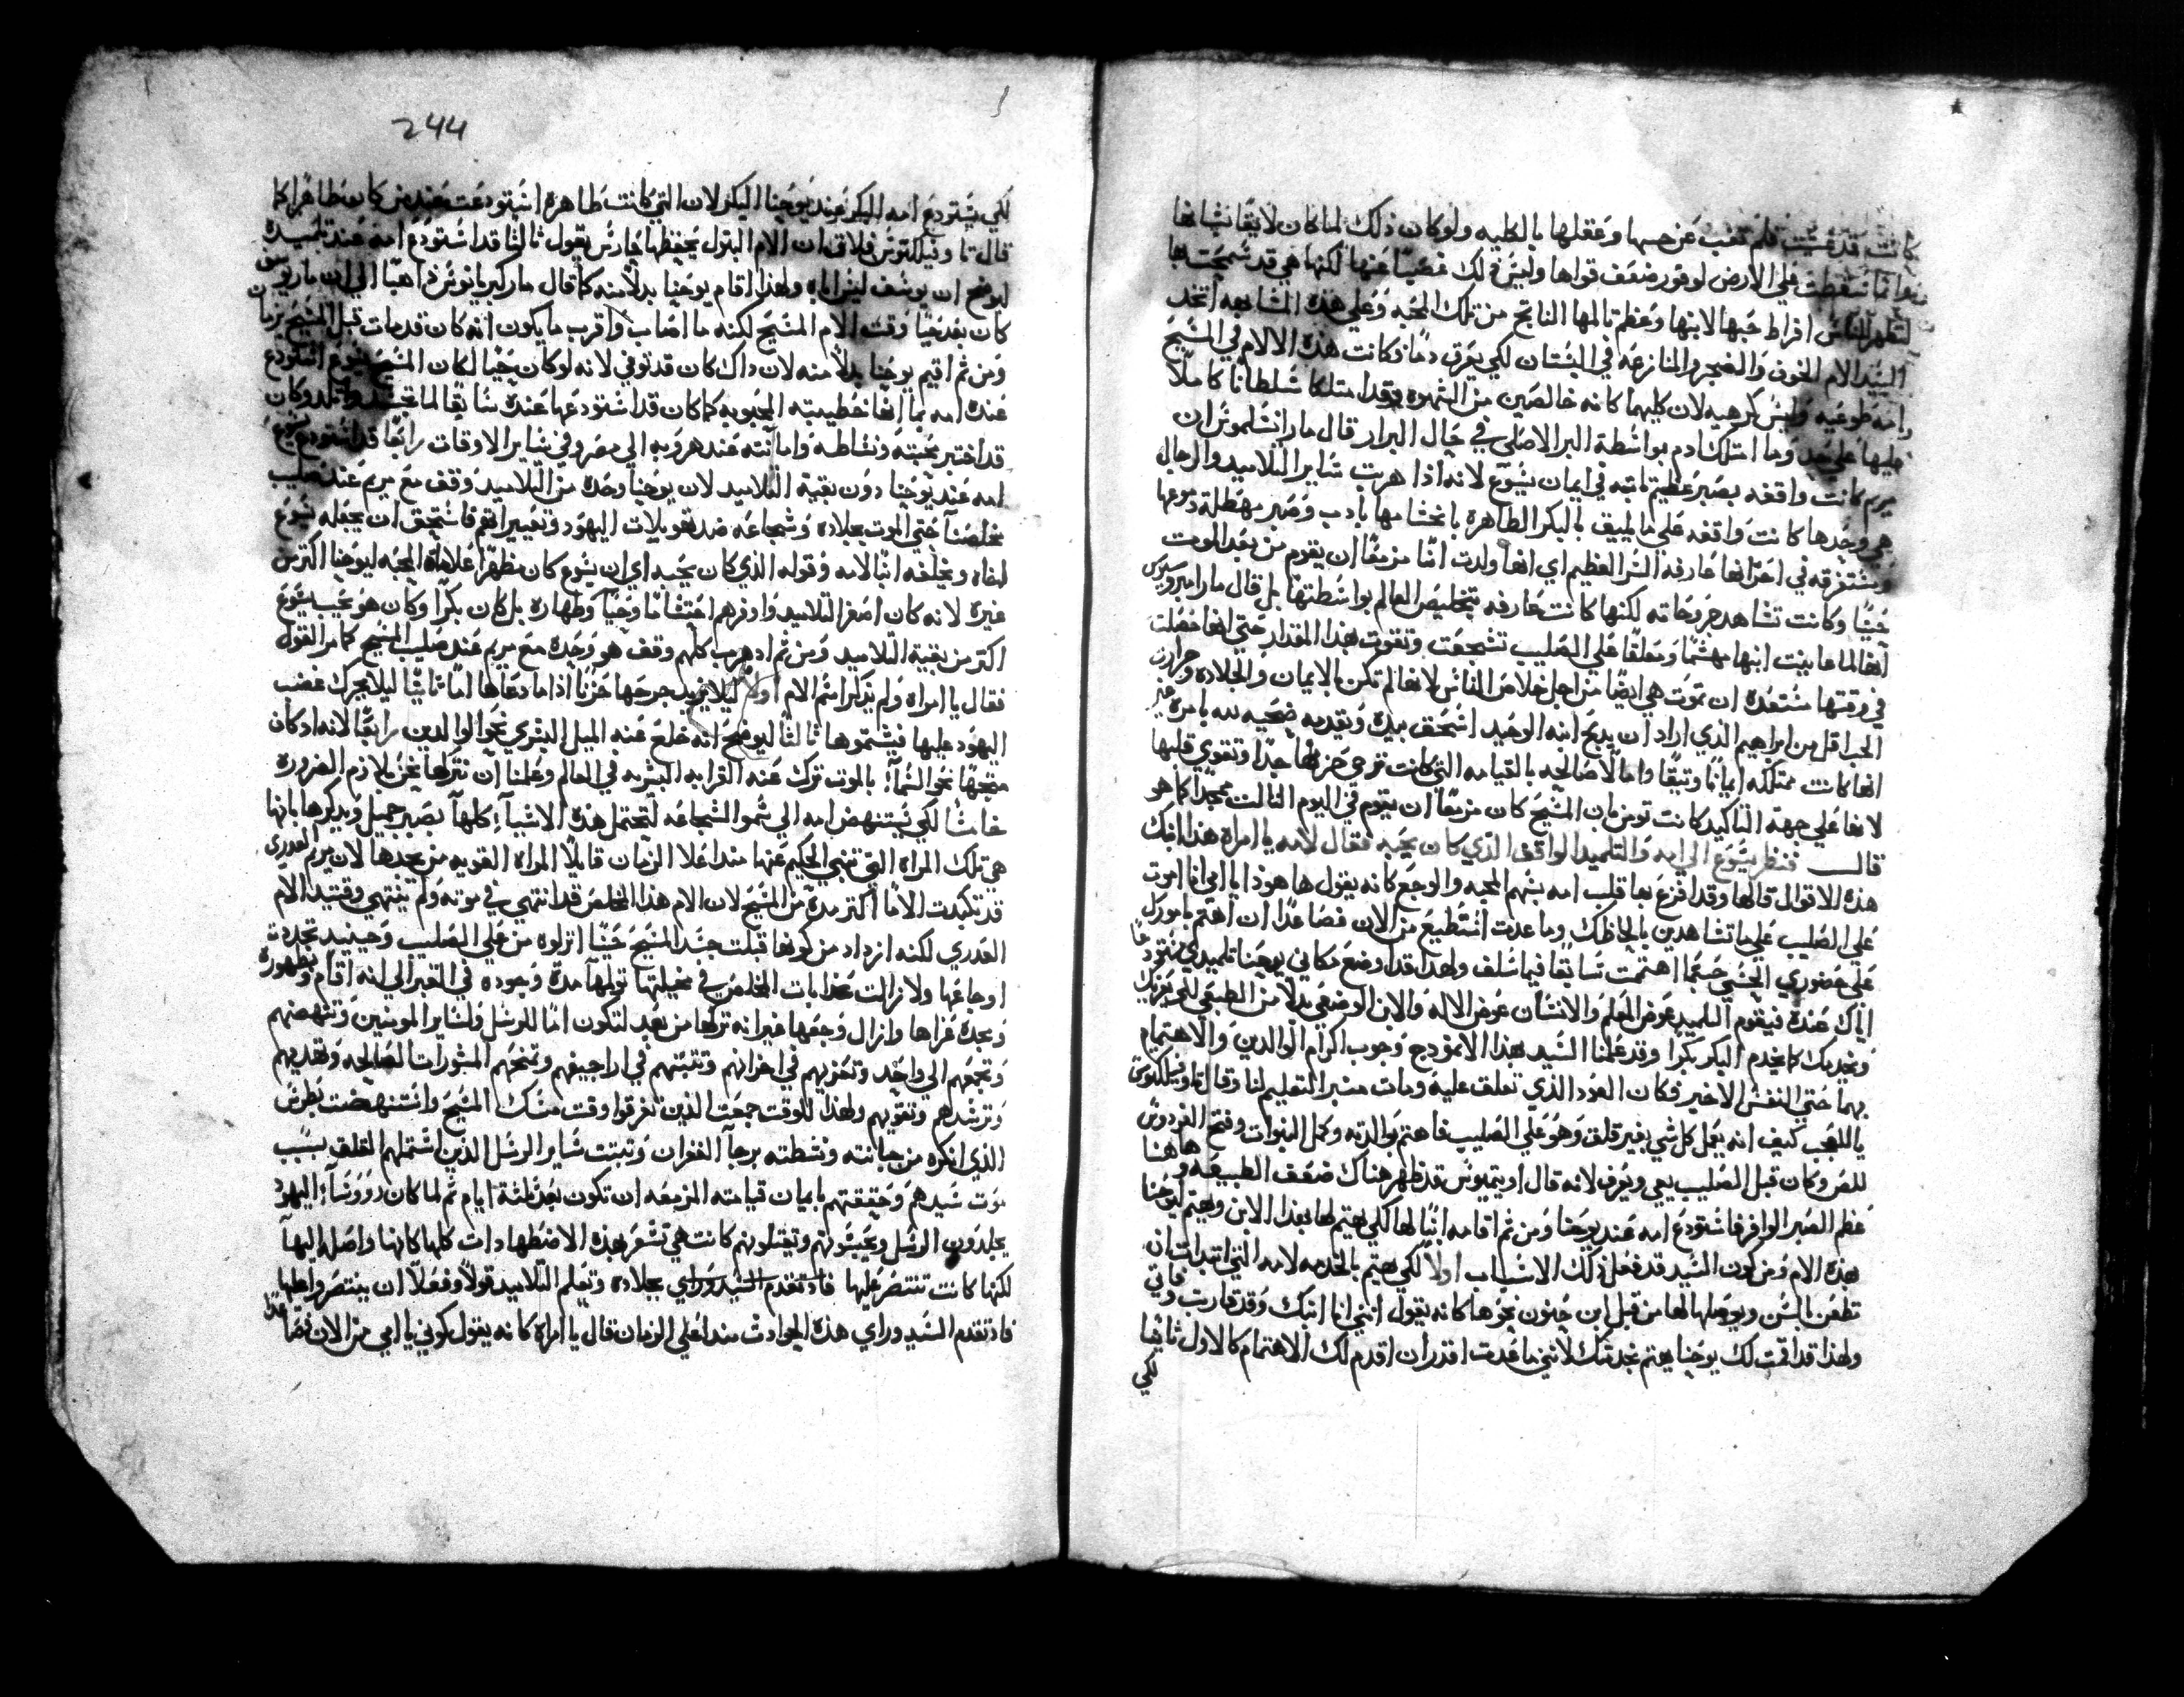 كانت قد غشيت فلم تغب عن حسها وعقلها بالكليه ولو كان ذلك لما كان لايقا بشانها
وانما سقطت علي الارض لوفور ضعف قواها وليس ذلك غصبا عنها لكنها هي قد سمحت بها
لتظهر للناس افراط حبها لابنها وعظم تالمها الناتج من تلك المحبه وعلي هذه المشابهه اتخد
السيد الام الخوف والضجر والمنازعه في البستان لكي يعرق دما وكانت هذه الالام في المسيح
وامه طوعيه وليس كرهيه لان كليهما كانه خالصين من الشهوه وقد امتلكا سلطانا كاملا
عليها علي حد وما امتلك ادم بواسطة البر الاصلي في حال البرار قال مار انسلموس ان
مريم كانت واقفه بصبر عظيم ثابته في ايمان يسوع لانه اذا هربت ساير التلاميد والرجال
هي وحدها كانت واقفه علي ما يليق بالبكر الطاهرة بانحشامها بادب وصبر مهطلة دموعها
ومستغرقه في احزانها عارفه السر العظيم اي انها ولدت انسا مزمعا ان يقوم من بعد الموت
حيا وكانت تشاهد جروحاته لكنها كانت عارفه بتخليص العالم بواسطتها بل قال مار امبروسيوس
انها لما عاينت ابنها مهشما ومعلقا علي الصليب تشجعت وتقوت بهذا المقدار حتي انها حصلت
في وقتها مستعدة ان تموت هي ايضا من اجل خلاص الناس لانها لم تكن بالايمان والجلاده وحرارة
الحب اقل من ابراهيم الذي اراد ان يدبح ابنه الوحيد اسحق بيده ويقدمه ضحيه لله بامره غير
انها كانت ممتلكه ايمانا وتيقا واملا صالحه بالقيامه التي كانت تعزي حزنها جدا وتقوي قلبها
لانها علي جهة التاكيد كانت تومن بان المسيح كان مزمعا ان يقوم في اليوم التالت ممجدا كما هو
قالـ فنظر يسوع الي امه والتلميد الواقف الذي كان يحبه فقال لامه يا امراه هذا ابنك
هذه الاقوال قالها وقد افزع بها قلب امه بسهم المحبه والوجع كانه يقول ها هوذا يا امي انا اموت
علي الصليب علي ما تشاهدين بالحاظك وما عدت استطيع من الان فصاعدا ان اهتم بامورك
علي حضوري الحسي حسبما اهتممت سابقا فيما سلف ولهذا قد اوضع مكاني يوحنا تلميدي مستودعا
اياك عنده فيقوم التلميد عوض المعلم والانسان عوض الاله والابن الوضعي بدلا من الطبيعي لكي يعزيك
ويخدمك كما يخدم البكر بكرا وقد علمنا السيد بهذا الانمودج وجوب اكرام الوالدين والاهتمام
بهما حتي النفس الاخير فكان العود الذي تعلف عليه ومات منبر التعليم لنا وقال تاوفيلكتوس
يا للعجب كيف انه يعمل كل شي بغير قلق وهو علي الصليب فاهتم بوالدته وكمل النبوات وفتح الفردوس
للص وكان قبل الصليب يعي ويعرف لانه قال اوتيميوس قد ظهر هناك ضعف الطبيعه وها هنا
عظم الصبر الوافر فاستودع امه عند يوحنا ومن ثم اقامه ابنا لها لكي يهتم لها بهذا الابن ويهتم ليوحنا
بهذه الام ومن كون السيد قد فعل ذلك الاسباب اولا لكي يهتم بالخدمه لامه التي ابتدات ان
تطعن بالسن ويوصلها لها من قبل ابن حنون نحوها كانه يقول انني انا ابنك وقد قاربت وفاتي
ولهذا قد اقمت لك يوحنا يهتم بخدمتك لانني ما عدت اقدر ان اقدم لك الاهتمام كالاول ثانيا
لكي
244
لكي يستودع امه البكر عند يوحنا البكر لان التي كانت طاهرة استودعت عند من كان طاهرا كما
قال تاوفيلكتوس فلاق ان الام البتول يحفظها حارس بتول ثالثا قد استودع امه عند تلميده
ليوضح ان يوسف ليس اباه ولهذا اقام يوحنا بدلا منه كما قال مار كبريانوس ذاهبا الي ان مار يوسف
كان بعد حيا وقت الام المسيح لكنه ما اصاب واقرب ما يكون انه كان قد مات قبل المسيح بزمان
ومن ثم اقيم يوحنا بدلا منه لان داك كان قد توفي لانه لو كان حيا لكان المسيح يسوع استودع
عنده امه بما انها خطيبته المحبوبه كما كان قد استودعها عنده سابقا لما تجسد واتلد وكان
قد اختبر محبته ونشاطه وامانته عند هروبه الي مصر وفي ساير الاوقات رابعا قد استودع يسوع
امه عند يوحنا دون بقية التلاميد لان يوحنا وحده من التلاميد وقف مع مريم عند صليب
مخلصنا حتي الموت بجلاده وشجاعه ضد تهويلات اليهود وتعييراتهم فاستحق ان يجعله يسوع
اخاه ويخلفه ابنا لامه وقوله الذي كان يحبه اي ان يسوع كان مظهرا علامات المحبه ليوحنا اكتر من
غيره لانه كان اصغر التلاميد واوفرهم احتشاما وحبا وطهاره بل كان بكرا وكان هو يحب يسوع
اكتر من بقية التلاميد ومن ثم اد هرب كلهم وقف هو وحده مع مريم عند صليب المسيح كما مر القول
فقال يا امراه ولم يذكر اسم الام اولا ليلا يزيد جرحها حزنا اذا ما دعاها اما ثانيا ليلا يحرك غضب
اليهود عليها فيشتموها ثالثا ليوضح انه خلع عنه الميل البشري نحو الوالدين رابعا لانه اد كان
متجها نحو السما بالموت ترك عنه القرابه البشريه في العالم وعلمنا ان نتركها نحن بلازم الضروره
خامسا لكي يستنهض امه الي سمو الشجاعه لتحتمل هذه الاشيا كلها بصبر جميل ويدكرها بانها
هي تلك المراه التي تنبي الحكيم عنها منداعلا الزمان قايلا المراه القويه من يجدها لان مريم العدري
قد تكبدت الاما اكتر مدة من المسيح لان الام هذا المخلص قد انتهي في موته ولم تنتهي وقتيد الام
العدري لكنه ازداد من كونها قبلت جسد المسيح حينا انزلوه من علي الصليب وحينيد تجددت
اوجاعها ولا زالت عدابات المخلص في مخيلتها تولمها مدة وجوده في القبر الي انه اقام وبظهوره
وعده عزاها وازال وجعها غير انه تركها من بعد لتكون اما للرسل ولساير المومنين وتنهضهم
وتجمعهم الي واحد وتعزيهم في احزانهم وتثبتهم في اراجيفهم وتمنحهم المشورات الصالحه وتهديهم
وترشدهم وتقويهم ولهذا للوقت جمعت الذين تفرقوا وقت مسك المسيح واستنهضت بطرس
الذي انكره من جبانته ونشطته برجا الغفران وتبتت ساير الرسل الذين اشتملهم القلق بسبب
موت سيدهم وحققتهم بايمان قيامته المزمعه ان تكون بعد ثلثة ايام ثم لما كان رووسا اليهود
يجلدون الرسل ويحبسونهم ويقتلونهم كانت هي تشعر بهذه الاضطهادات كلها كانها واصله اليها
لكنها كانت تنتصر عليها فاد تقدم السيد وراي بجلاده وتعلم التلاميد قولا وفعلا ان ينتصروا عليها
فاد تقدم السيد وراي هذه الحوادث منداعلي الزمان قال يا امراة كانه يقول كوني يا امي من الان فصاعدا